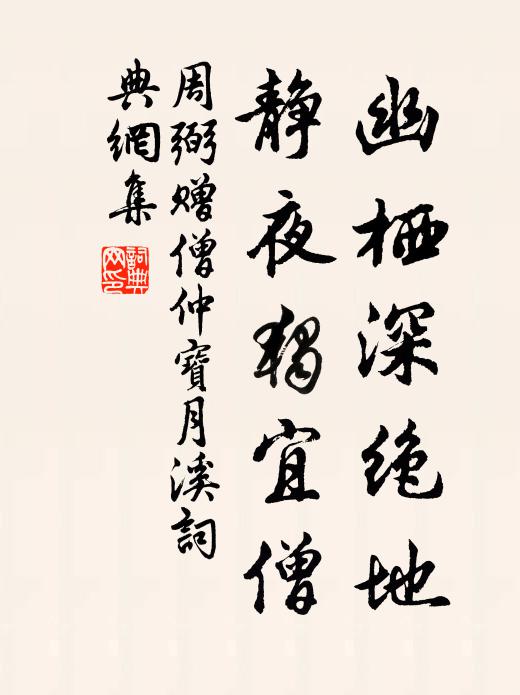 幽栖深绝地
静夜独宜僧
周弼赠僧仲寶月溪詞
典網集
詞典网印